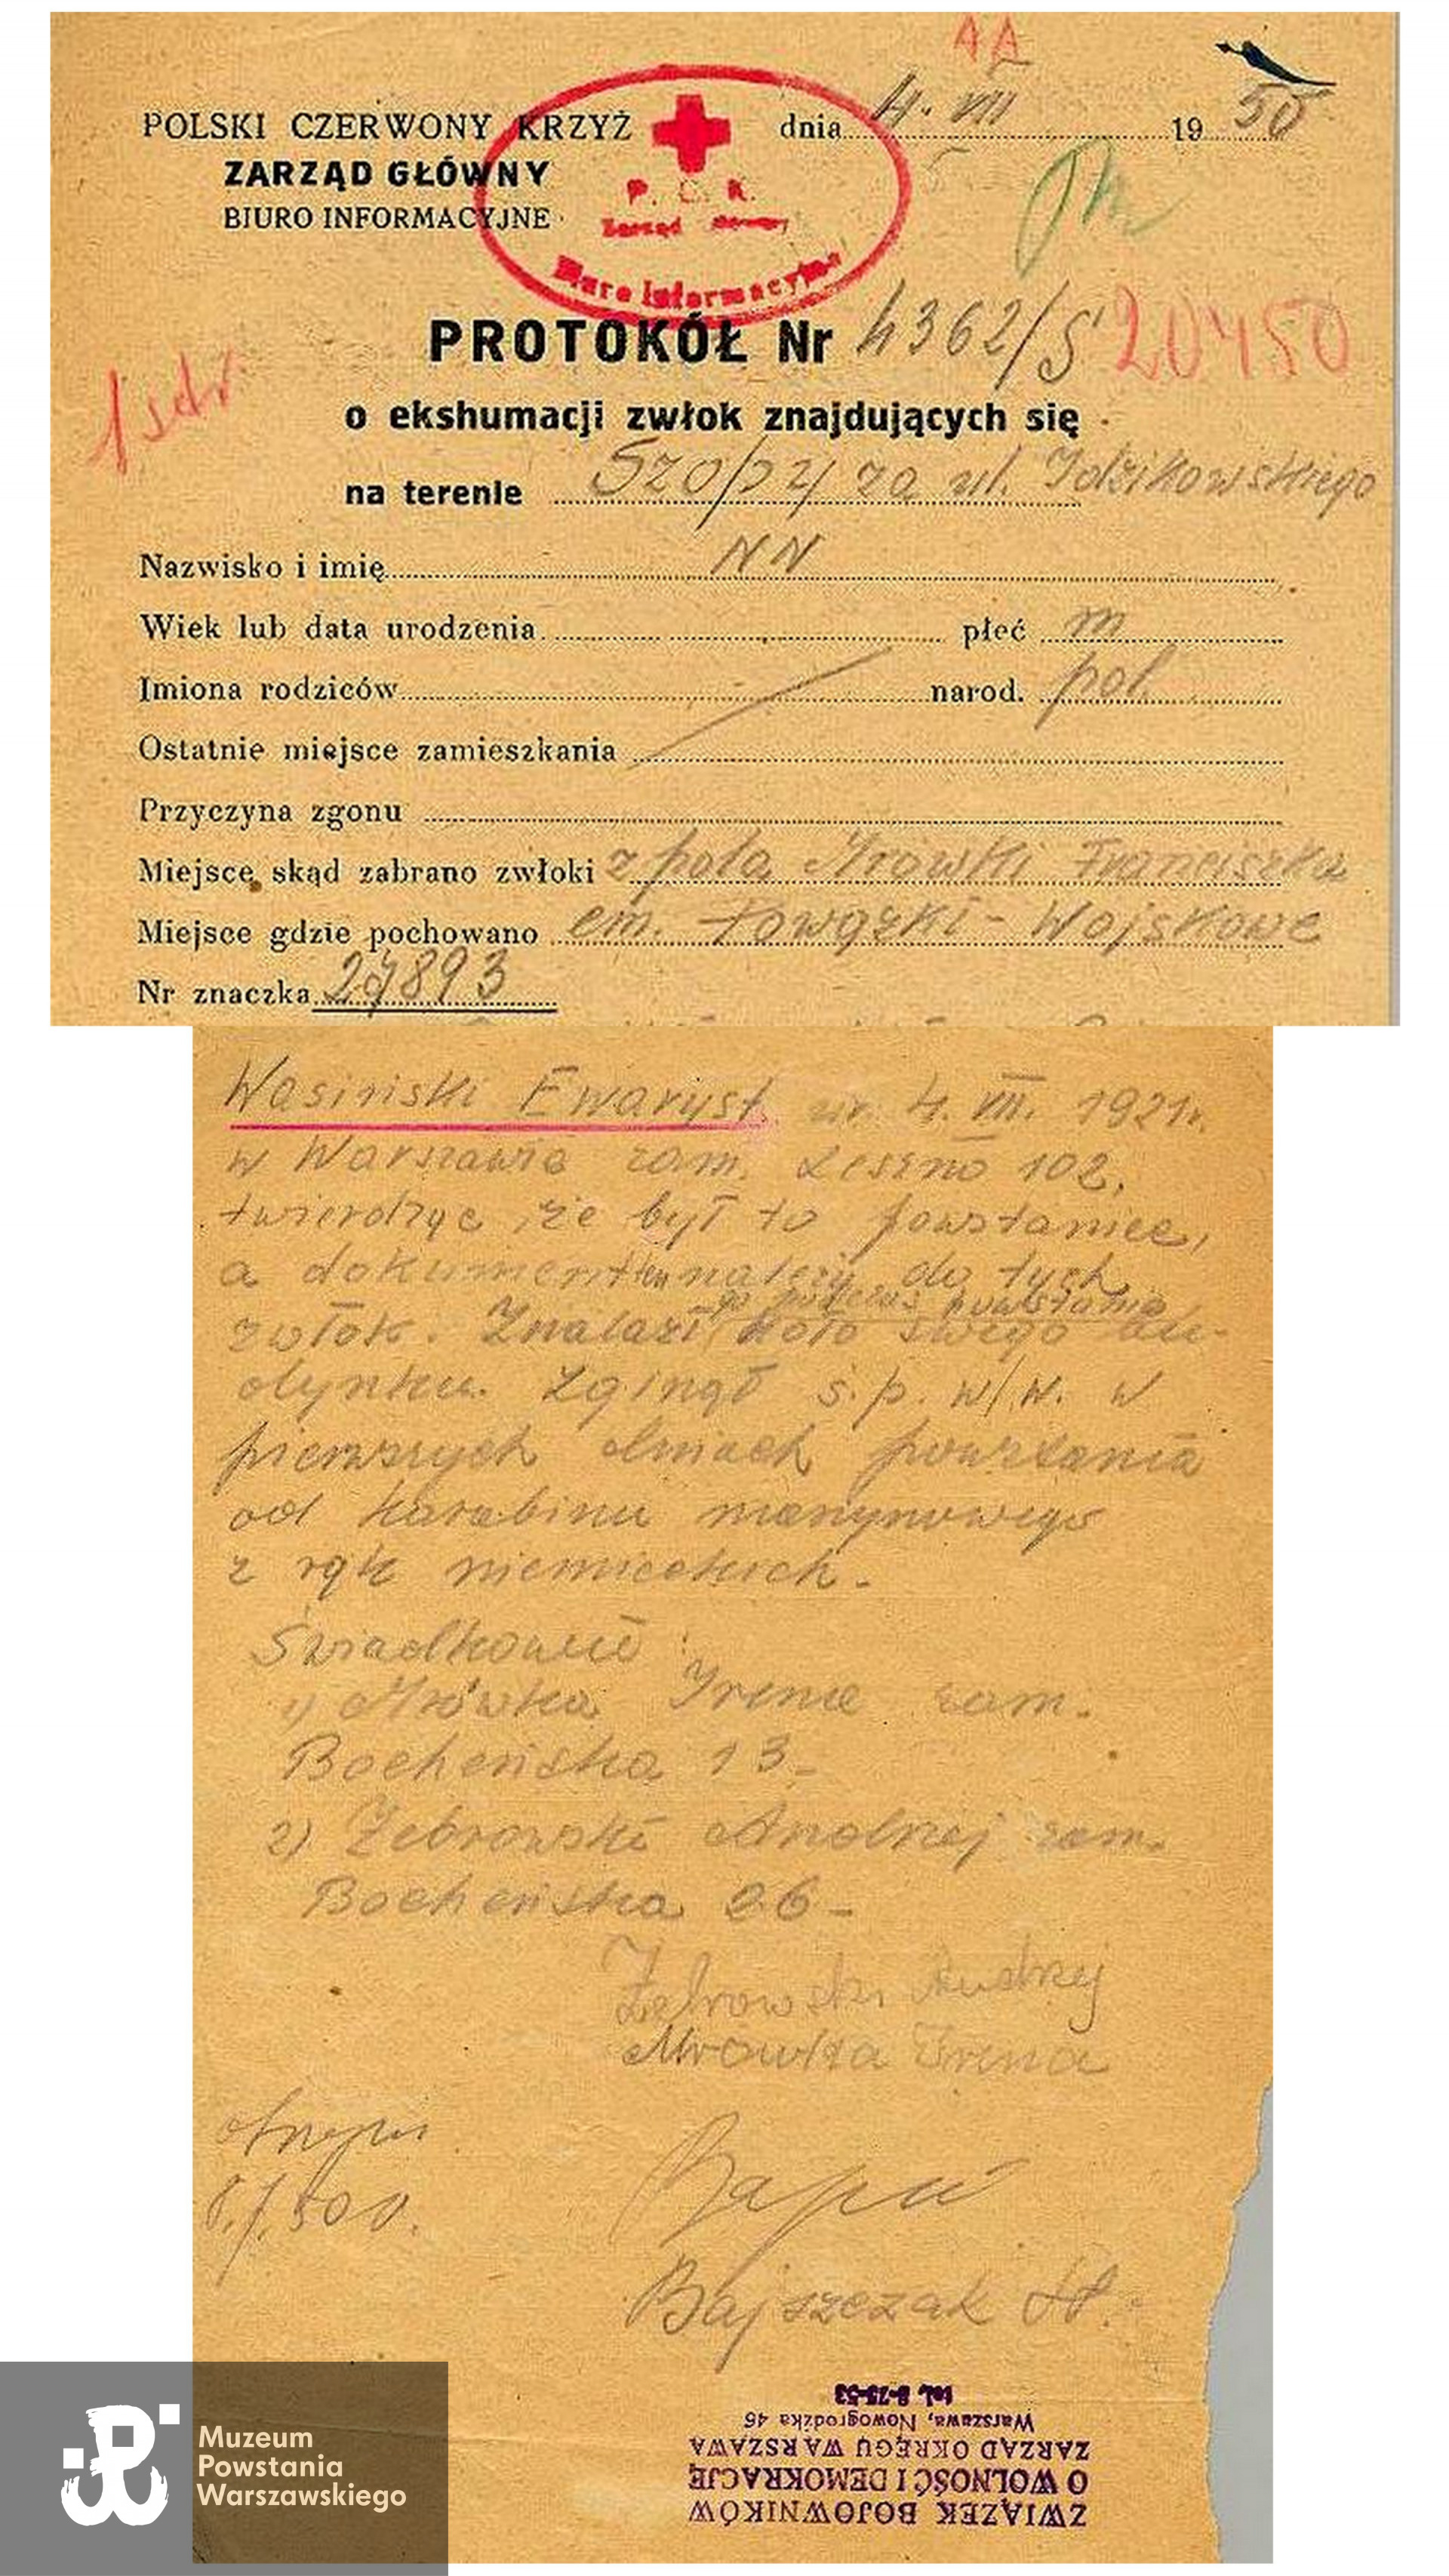 4A
POLSKI CZERWONY KRZYŻ dnia 4. VII 1950
ZARZĄD GŁÓWNY
BIURO INFORMACYJNE
P. C. K.
Zarząd Główny
Biuro Informacyjne
PROTOKÓŁ Nr 4362/S 20450
1 sdr.
o ekshumacji zwłok znajdujących się
na terenie Szopy za ul. Idzikowskiego
Nazwisko i imię NN
Wiek lub data urodzenia płeć m
Imiona rodziców narod. pol.
Ostatnie miejsce zamieszkania
Przyczyna zgonu
Miejsce, skąd zabrano zwłoki z pola Franciszka
Miejsce gdzie pochowano cm. Powązki - Wojskowe
Nr znaczka 27893
Wasiński Ewaryst ur. 4. VII. 1921r.
w Warszawie zam. Leszno 102,
twierdząc że był to powstaniec,
a dokument ten należy do tych
go podczas powstania
zwłok. Znalazł koło swego bu-
dynku. Zginął ś.p. w/w. w
pierwszych dniach powstania
od karabinu maszynowego
z rąk niemieckich.
Świadkowie:
1) Mrówka Irena zam.
Bocheńska 13.-
2) Żebrowski Andrzej zam.
Bocheńska 26-
Żebrowski Andrzej
Mrówka Irena
Bajszczak H.
ZWIĄZEK BOJOWNIKÓW
O WOLNOŚĆ I DEMOKRACJĘ
ZARZĄD OKRĘGU WARSZAWA
Warszawa, Nowogrodzka 46
tel. 8-75-53
Muzeum
Powstania
Warszawskiego